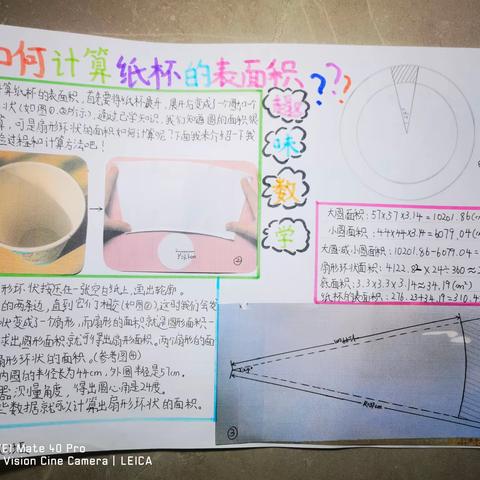 如何计算纸杯的表面积???
趣味数学
计算纸杯的表面积,首先要将纸杯展开,展开后变成了一个圆和一个
状(如图①,②所示),通过已学知识,我们知道圆的面积
算,可是扇形环状的面积如何计算呢?下面我来介绍一下我
过程和计算方法吧!
②
形环状按压在一张空白纸上,画出轮廓。
的两条边,直到它们相交(如图③),这时我们会发
状变成了一个扇形,而扇形的面积就是圆形面积一
求出圆形面积就可得出扇形面积。两个扇形的面
扇形环状的面积。(参考图④)
内圆的半径长为44cm,外圆半径是57cm。
器,测量角度,得出圆心角是24度。
些数据就可以计算出扇形环状的面积。
大圆面积:57×57×3.14=10201.86(cm
小圆面积:44×44×3.14=6079.04(cm
大圆减小圆面积:10201.86-6079.04=
扇形环状面积:4122.82×24÷360≈2
底面积:3.3×3.3×3.14≈34.19(cm²)
纸杯的表面积:276.23+34.19=310.4
③
Mate 40 Pro
Vision Cine Camera | LEICA